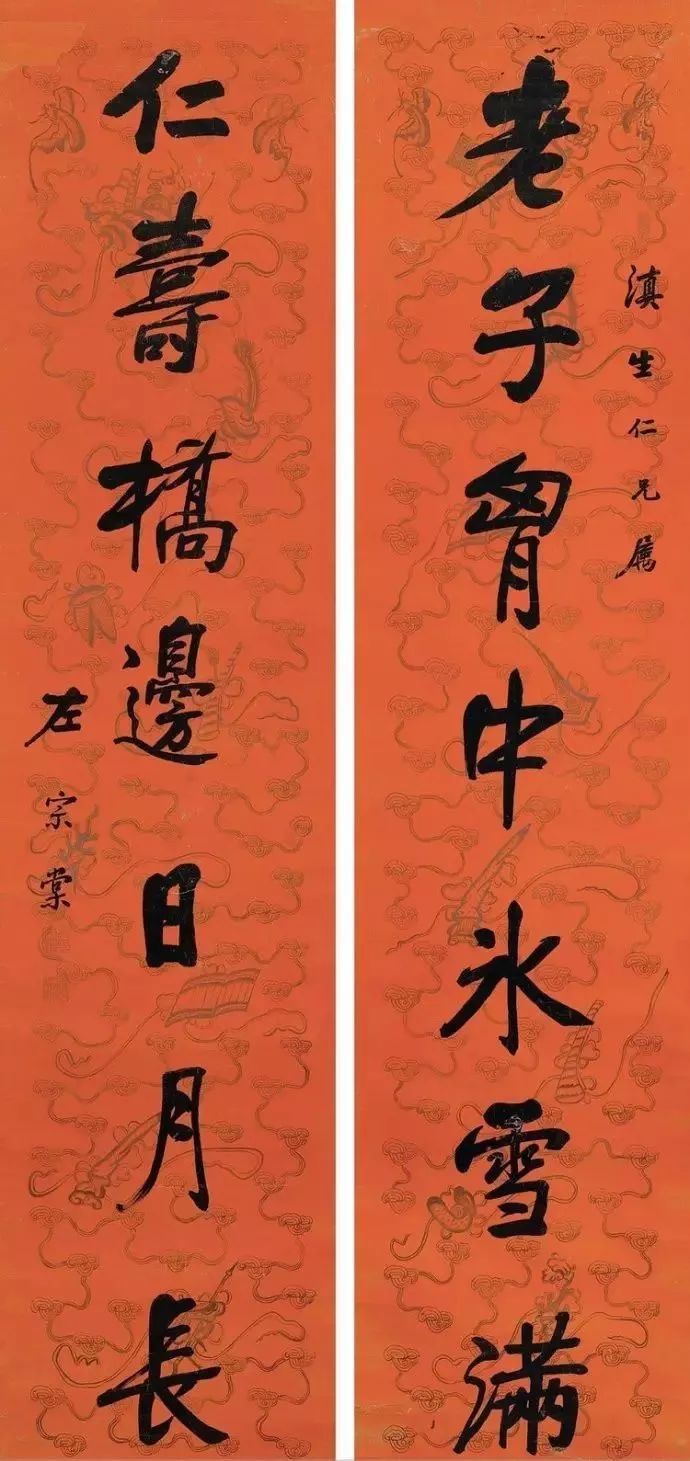 滇生仁兄属
老子胷中冰雪满
仁壽橋邊日月長
左宗棠